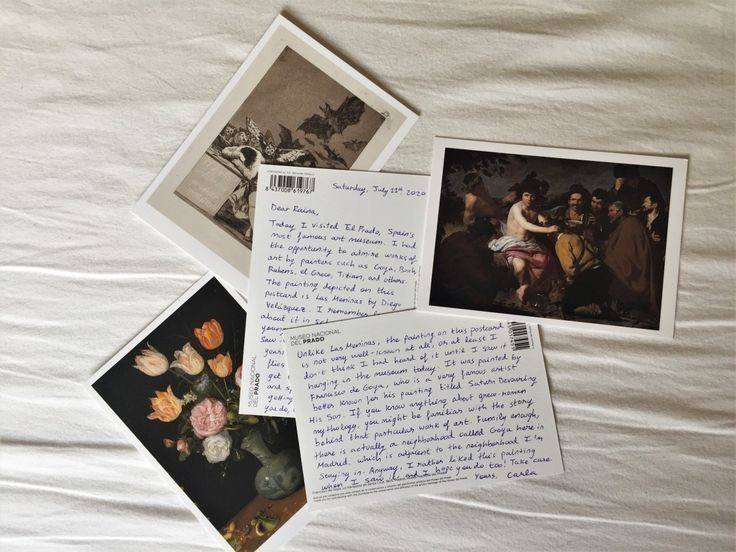 8 437008 619767
Saturday, July 11th 2020
Dear Raina,
Today I visited El Prado, Spain's
most famous art museum. I had
the opportunity to admire works of
art by painters such as Goya, Bosch,
Rubens, el Greco, Titian, and others.
The painting depicted on this
postcard is Las Meninas by Diego
Velázquez. I remember
about it in
saw i
years
flies
get
and s
getting
you do,
MUSEO NACIONAL
DEL PRADO
MUSEO NACIONAL
DEL PRADO
Unlike Las Meninas, the painting on this postcard
is not very well-known at all, or at least I
don't think I had heard of it until I saw it
hanging in the museum today. It was painted by
Francisco de Goya, who is a very famous artist
better known for his painting titled Saturn Devouring
His Son. If you know anything about greco-roman
mythology, you might be familiar with the story
behind that particular work of art. Funnily enough,
there is actually a neighborhood called Goya here in
Madrid, which is adjacent to the neighborhood I'm
staying in. Anyway, I rather liked this painting
when I saw it, and I hope you do too! Take care
Yours, Carla